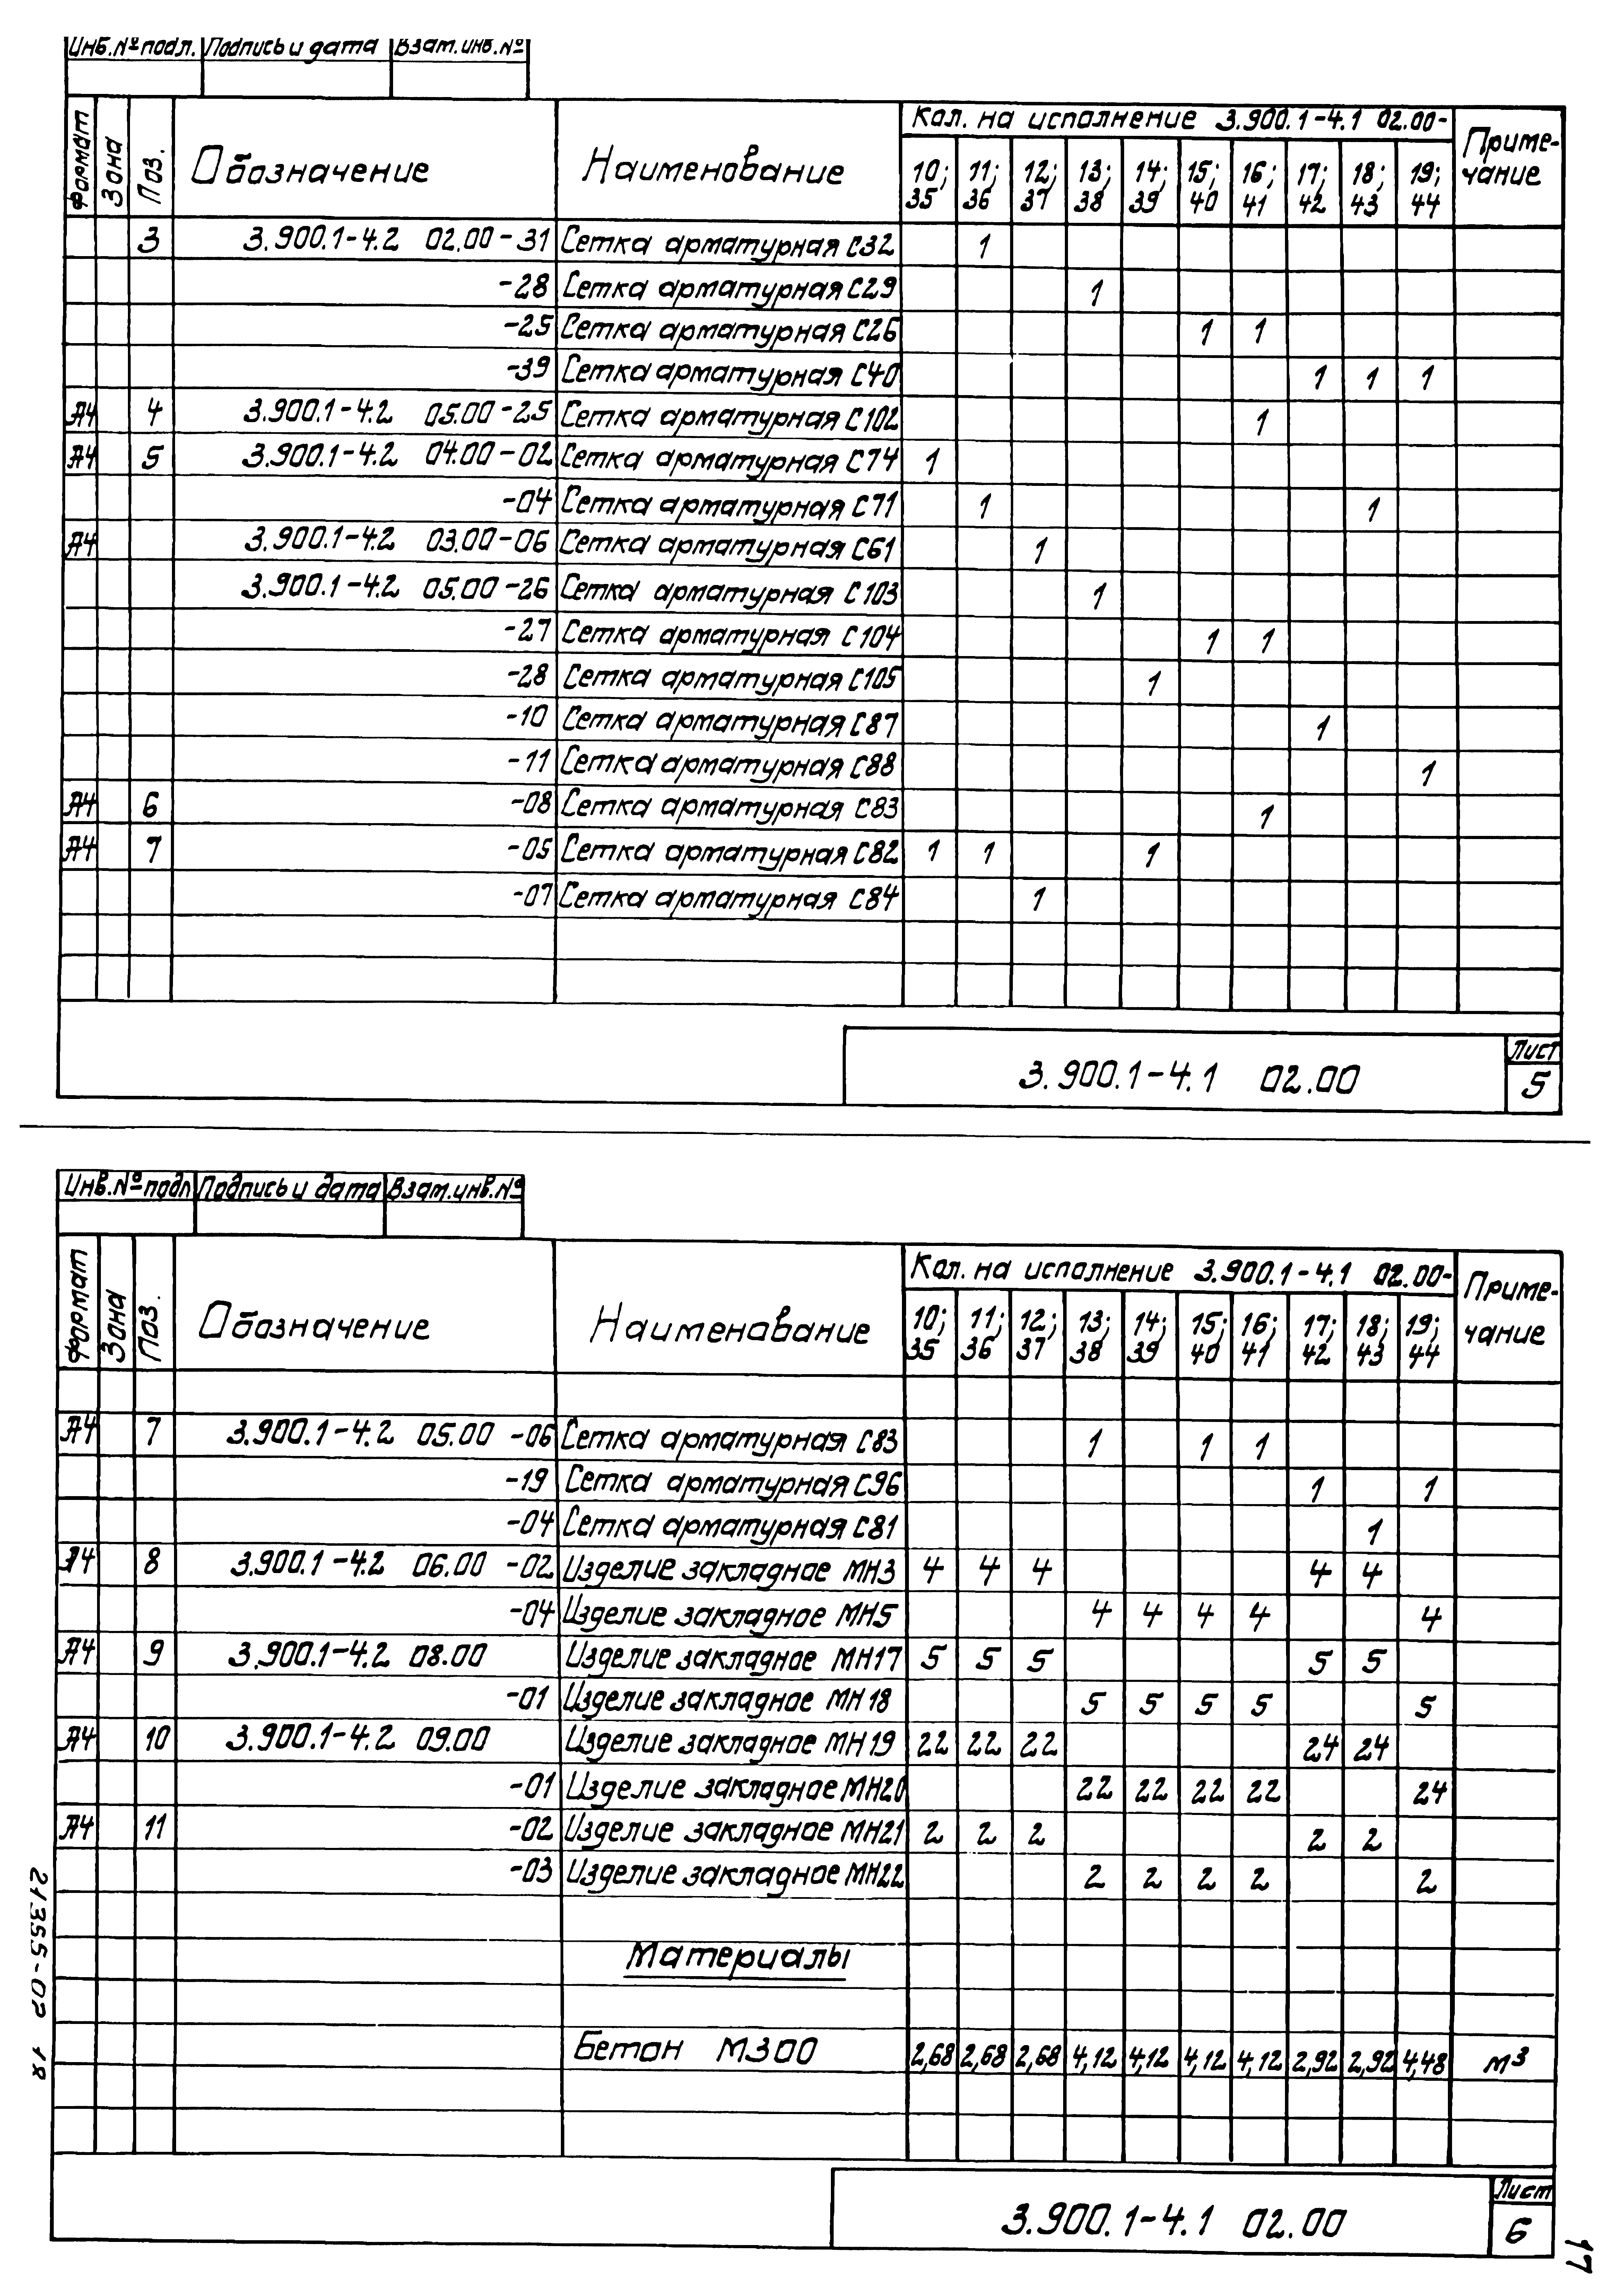 Инв.№ подл. Подпись и дата Взам.инв.№
Формат Зона Поз. Обозначение Наименование Кол. на исполнение 3.900.1-4.1 02.00- Приме-чание
10; 35 11; 36 12; 37 13; 38 14; 39 15; 40 16; 41 17; 42 18; 43 19; 44
3 3.900.1-4.2 02.00-31 Сетка арматурная С32 1
-28 Сетка арматурная С29 1
-25 Сетка арматурная С26 1 1
-39 Сетка арматурная С40 1 1 1
А4 4 3.900.1-4.2 05.00-25 Сетка арматурная С102 1
А4 5 3.900.1-4.2 04.00-02 Сетка арматурная С74 1
-04 Сетка арматурная С71 1 1
А4 3.900.1-4.2 03.00-06 Сетка арматурная С61 1
3.900.1-4.2 05.00-26 Сетка арматурная С103 1
-27 Сетка арматурная С104 1 1
-28 Сетка арматурная С105 1
-10 Сетка арматурная С87 1
-11 Сетка арматурная С88 1
А4 6 -08 Сетка арматурная С83 1
А4 7 -05 Сетка арматурная С82 1 1 1
-07 Сетка арматурная С84 1
3.900.1-4.1 02.00 Лист 5
Инв.№ подл Подпись и дата Взам.инв.№
Формат Зона Поз. Обозначение Наименование Кол. на исполнение 3.900.1-4.1 02.00- Приме-чание
10; 35 11; 36 12; 37 13; 38 14; 39 15; 40 16; 41 17; 42 18; 43 19; 44
А4 7 3.900.1-4.2 05.00 -06 Сетка арматурная С83 1 1 1
-19 Сетка арматурная С96 1 1
-04 Сетка арматурная С81 1
А4 8 3.900.1-4.2 06.00 -02 Изделие закладное МН3 4 4 4 4 4
-04 Изделие закладное МН5 4 4 4 4 4
А4 9 3.900.1-4.2 08.00 Изделие закладное МН17 5 5 5 5 5
-01 Изделие закладное МН18 5 5 5 5 5
А4 10 3.900.1-4.2 09.00 Изделие закладное МН19 22 22 22 24 24
-01 Изделие закладное МН20 22 22 22 22 24
А4 11 -02 Изделие закладное МН21 2 2 2 2 2
-03 Изделие закладное МН22 2 2 2 2 2
Материалы
Бетон М300 2,68 2,68 2,68 4,12 4,12 4,12 4,12 2,92 2,92 4,48 м³
3.900.1-4.1 02.00 Лист 6
21355-02 18
17